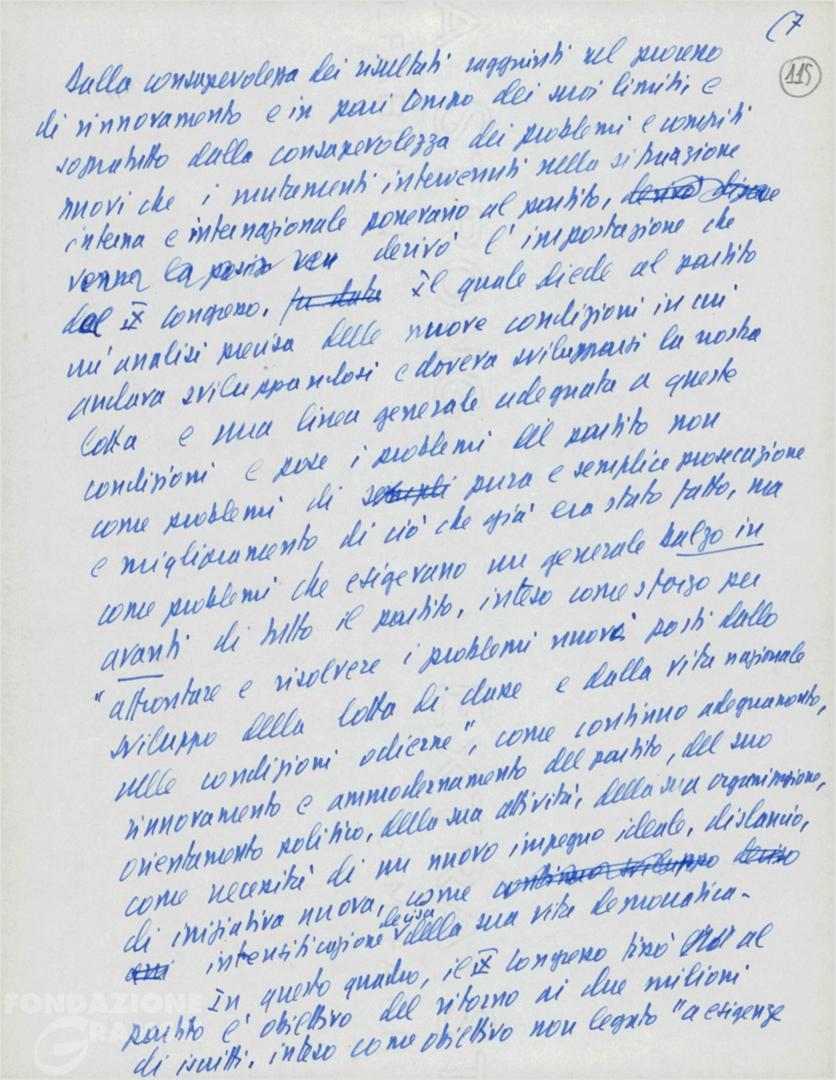 (7
115
Dalla consapevolezza dei risultati raggiunti nel processo
di rinnovamento e in pari tempo dei suoi limiti, e
sopratutto dalla consapevolezza dei problemi e compiti
nuovi che i mutamenti intervenuti nella situazione
interna e internazionale ponevano al partito,
derivò l'impostazione che
del IX congresso, Il quale diede al partito
un'analisi precisa delle nuove condizioni in cui
andava sviluppandosi e doveva svilupparsi la nostra
lotta e una linea generale adeguata a queste
condizioni e pose i problemi del partito non
come problemi di semplici pura e semplice prosecuzione
e miglioramento di ciò che già era stato fatto, ma
come problemi che esigevano un generale balzo in
avanti di tutto il partito, inteso come sforzo per
"affrontare e risolvere i problemi nuovi posti dallo
sviluppo della lotta di classe e dalla vita nazionale
nelle condizioni odierne", come continuo adeguamento,
rinnovamento e ammodernamento del partito, del suo
orientamento politico, della sua attività, della sua organizzazione,
come necessità di un nuovo impegno ideale, di slancio,
di iniziativa nuova, come continuo sviluppo deciso
intensificazione decisa della sua vita democratica.
In questo quadro, il IX congresso fissò al
partito l'obiettivo del ritorno ai due milioni
di iscritti, inteso come obiettivo non legato "a esigenze
FONDAZIONE
GRAMSCI